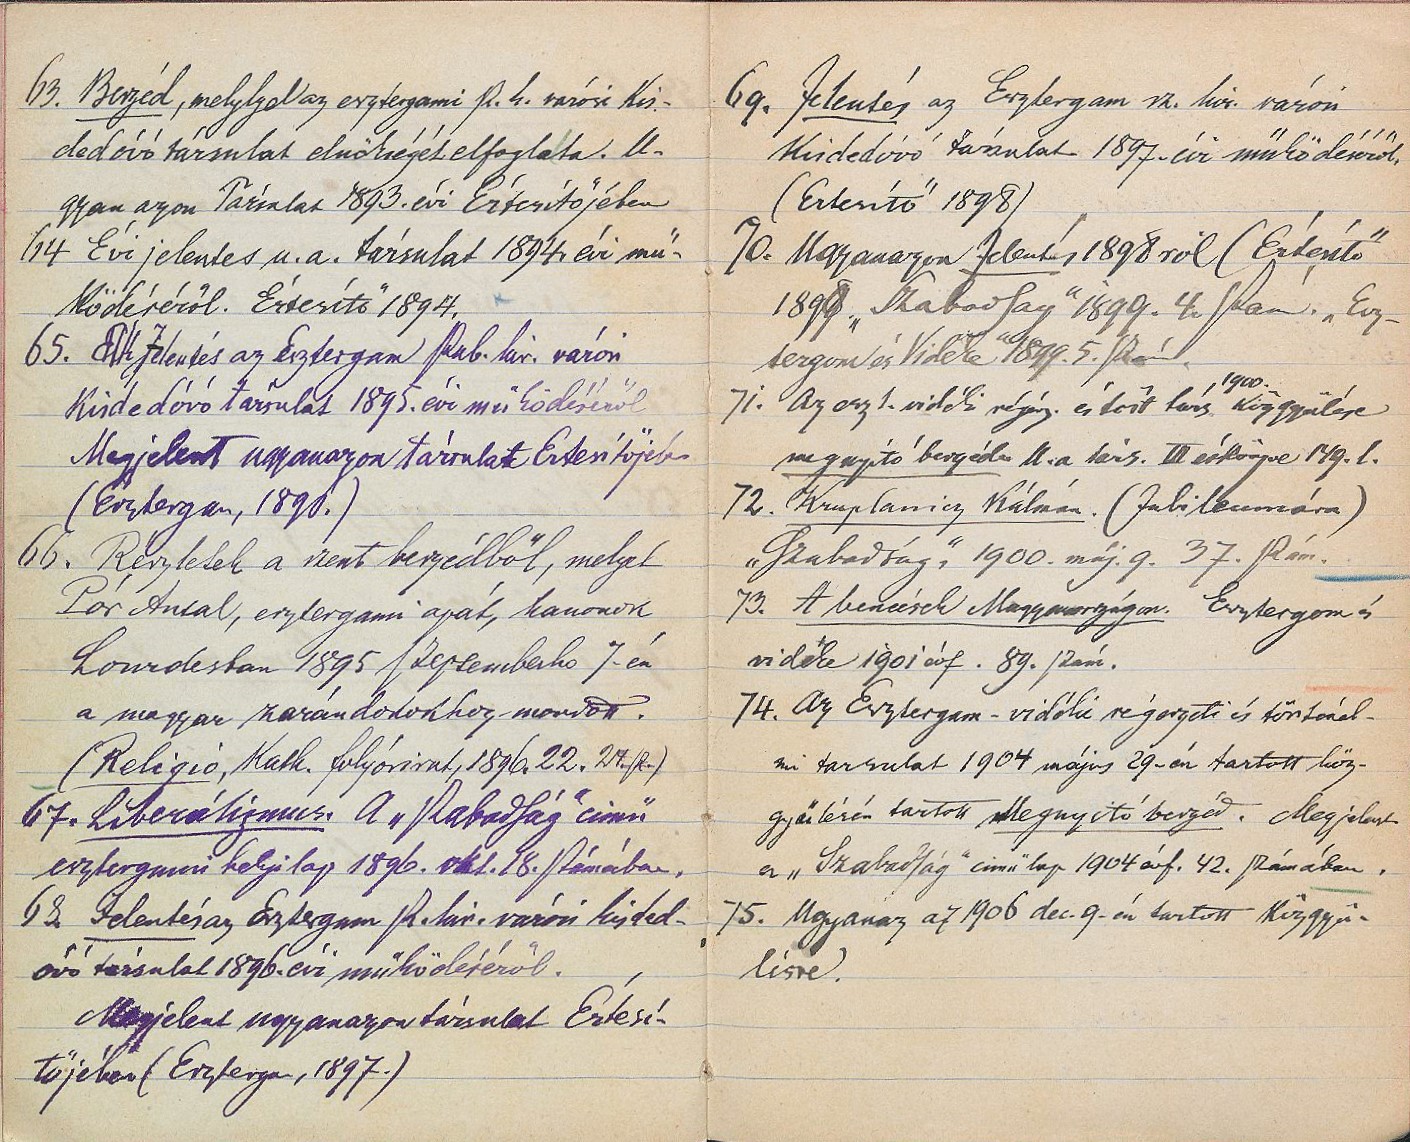 63. Beszéd, melylyel az esztergomi sz. k. városi Kis-
dedóvó társulat elnökségét elfoglalta. U-
gyan azon Társulat 1893. évi Értesítőjében
64 Évi jelentes u. a. társulat 1894. évi mű-
ködéséről. Értesítő 1894.
65. Jelentés az Esztergom szab. kir. városi
Kisdedóvó társulat 1895. évi működéséről
Megjelent ugyanazon társulat Értesítőjében
(Esztergom, 1896.)
66. Részletek a szent beszédből, melyet
Pór Antal, esztergomi apát, kanonok
Lourdesban 1895 szeptemberhó 7-én
a magyar zarándokokhoz mondott.
(Religió, Kath. folyóirat, 1896. 22. 24. sz.)
67. Liberálizmus. A „Szabadság" című
esztergomi helyi lap 1896. okt. 18. számában.
68. Jelentés az Esztergom sz. kir. városi kisded-
óvó társulat 1896. évi működéséről.
Megjelent ugyanazon társulat Értesí-
tőjében (Esztergom, 1897.)
69. Jelentés az Esztergom sz. kir. városi
Kisdedóvó társulat 1897-évi működéséről.
(Értesítő 1898)
70. Ugyanazon Jelentés 1898 ról (Értesítő
1899. „Szabadság" 1899. 4. szám. „Esz-
tergom és Vidéke" 1899. 5. szám.
71. Az eszt. vidéki régész. és tört társ. 1900. közgyűlése
megnyitó beszéde U. a társ. III évkönyve 149. l.
72. Kruplanicz Kálmán. (Jubileumára)
„Szabadság", 1900. máj. 9. 37. szám.
73. A bencések Magyarországon. Esztergom és
vidéke 1901 évf. 89. szám.
74. Az Esztergom-vidéki régészeti és történel-
mi tarsulat 1904 május 29-én tartott köz-
gyűlésén tartott Megnyitó beszéd. Megjelent
a „Szabadság" című lap 1904 évf. 42. számában.
75. Ugyanaz az 1906 dec. 9-én tartott Közgyű-
lésre.